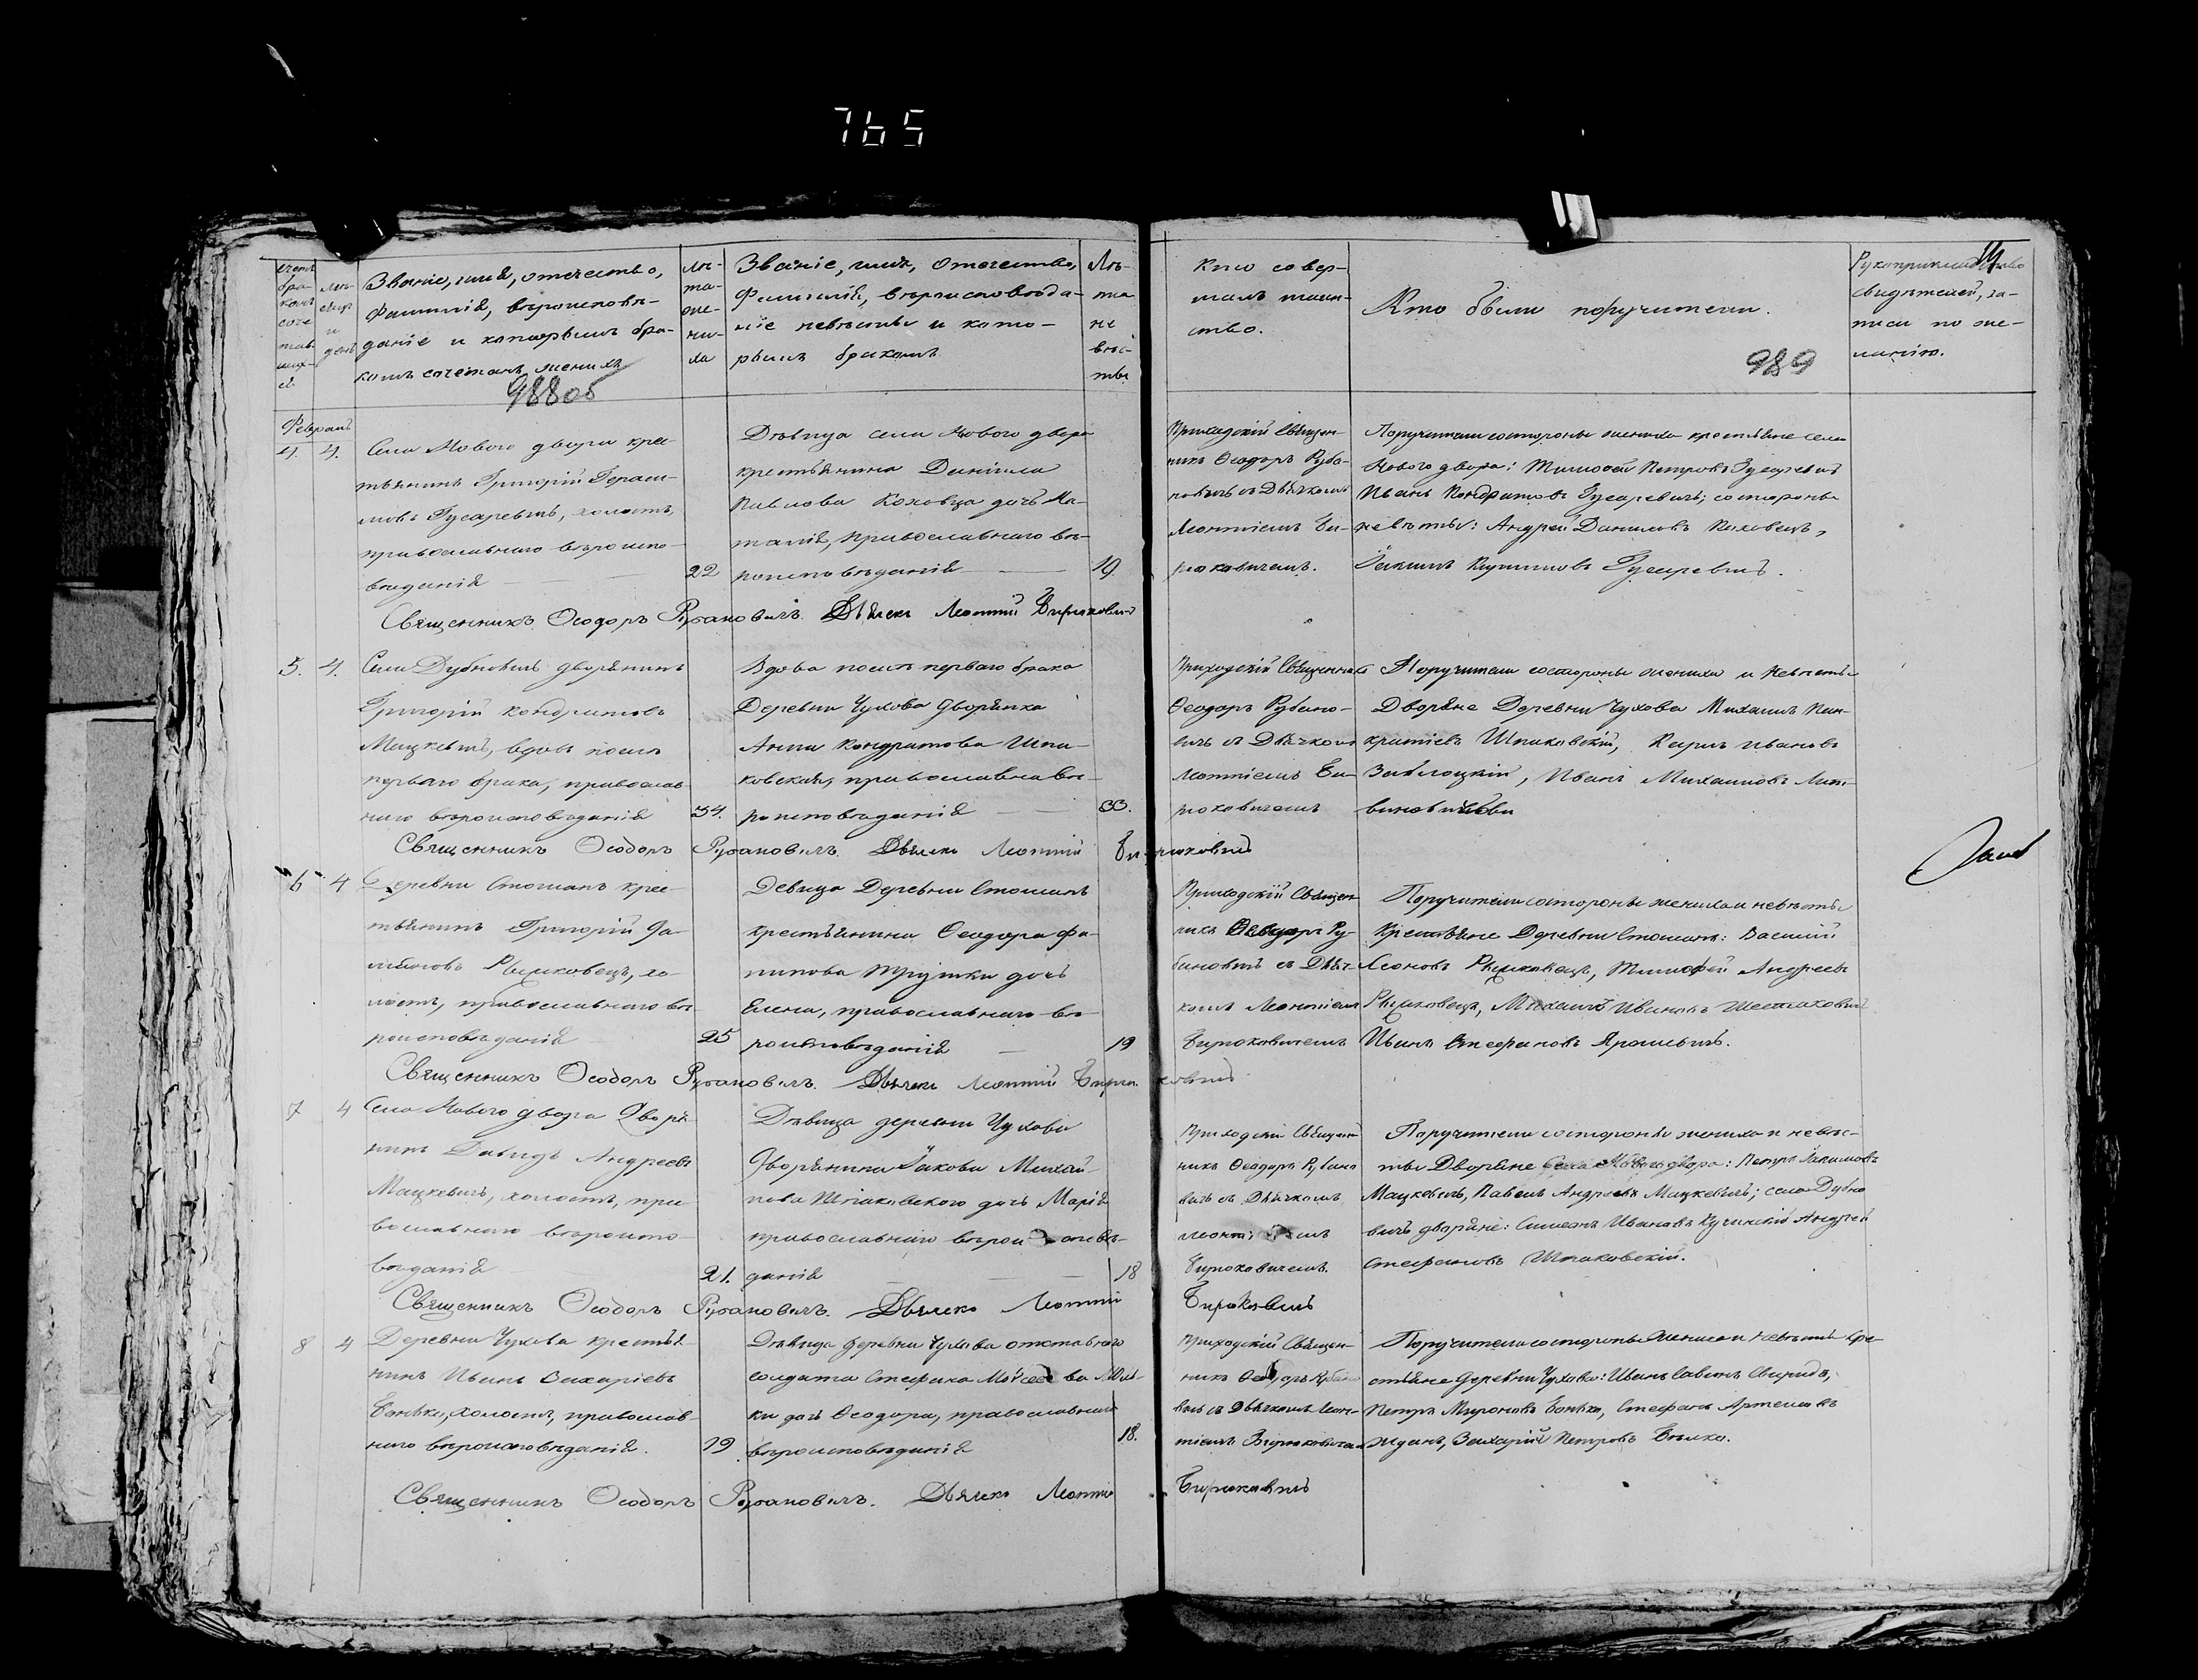 765
Звание, имя, отечество,
фамилия, вероиспове-
дание и которым бра-
ком сочетан жених
988об
ле-
та
же-
ни-
ха
Звание, имя, отечество,
фамилия, вероисповеда-
ние невесты и кото-
рым браком
Ле-
та
не
вес-
ты
Кто совер-
шал таин-
ство.
Кто были поручители.
989
свидетелей, за-
писи по же-
ланию.
4. 4.
Села Нового двора кре-
стьянинъ Григорій Гераси-
мовъ Гусаревичъ, холостъ,
православнаго вероиспо-
веданія
22
Девица села Нового двора
крестьянина Даніила
Павлова Коховца дочь На-
талія, православнаго ве-
роисповеданія
19
Приходскій Священ-
никъ Ѳеодоръ Руба-
новичъ съ Дьячкомъ
Леонтіемъ Би-
рюковичемъ.
Поручители со стороны жениха крестьяне села
Нового двора: Тимофей Петровъ Гусаревичъ
Иванъ Кондратовъ Гусаревичъ; со стороны
невесты: Андрей Даниловъ Коховецъ,
Гусаревичъ.
Священникъ Ѳеодоръ Рубановичъ. Дьячекъ Леонтій Бирюковичъ
5. 4.
Села Дубновичъ дворянинъ
Григорій Кондратовъ
Мацкевичъ, вдовъ после
перваго брака, православ-
наго вероисповеданія
34.
Вдова после перваго брака
Деревни Чухова дворянка
Анна Кондратова Шпа-
ковская, православна ве-
роисповеданія
33.
Приходскій Священникъ
Ѳеодоръ Рубано-
вичъ съ Дьячкомъ
Леонтіемъ Би-
рюковичемъ
Поручители со стороны жениха и невесты
Дворяне Деревни Чухова Михаилъ Пан-
кратіевъ Шпаковскій, Карпъ Ивановъ
Заблоцкій, Иванъ Михайловъ Лит-
Священникъ Ѳеодоръ Рубановичъ. Дьячекъ Леонтій Бирюковичъ
6 4
Деревни Стошанъ крес-
тьянинъ Григорій
Рышковецъ, хо-
лостъ, православнаго ве-
роисповеданія
25
Девица Деревни Стошанъ
крестьянина Ѳеодора
дочь
Елена, православнаго ве-
роисповеданія
19
Приходскій Священ-
никъ Ѳеодоръ Ру-
бановичъ съ Дьяч-
комъ Леонтіемъ
Бирюковичемъ
Поручители со стороны жениха и невесты
Крестьяне Деревни Стошанъ: Василій
Леоновъ Рышковецъ, Тимофей Андреевъ
Рышковецъ, Михаилъ Ивановъ Шестаковичъ
Иванъ Стефановъ Ярошевичъ.
Священникъ Ѳеодоръ Рубановичъ. Дьячекъ Леонтій Бирюковичъ
7 4
Села Нового двора Дворя-
нинъ Давидъ Андреевъ
Мацкевичъ, холостъ, пра-
вославнаго вероиспо-
веданія
21.
Девица деревни Чухова
Дворянина Іакова Михай-
лова Шпаковского дочь Марія
православнаго вероисповеданія
18
Приходскій Священ-
никъ Ѳеодоръ Рубано
вичъ съ Дьячкомъ
Бирюковичемъ.
Поручители со стороны жениха и невес-
ты Дворяне Села Нового двора: Петръ Іакимовъ
Мацкевичъ, Павелъ Андреевъ Мацкевичъ; села Дубно
вичъ дворяне: Симеонъ Ивановъ Кучинскій Андрей
Стефановъ Шпаковскій.
Священникъ Ѳеодоръ Рубановичъ. Дьячекъ Леонтій Бирюковичъ
8 4
Деревни Чухова крестья-
нинъ Иванъ Захаріевъ
холостъ, православ-
наго вероисповеданія.
19
Девица деревни Чухова отставного
солдата Стефана
дочь Ѳеодора, православнаго
вероисповеданія
18.
Приходскій Священ-
никъ Ѳеодоръ Рубано
вичъ съ Дьячкомъ Леон-
тіемъ Бирюковичемъ
Поручители со стороны жениха и невесты кре-
стьяне деревни Чухова: Иванъ Савинъ
Петръ Мироновъ Стефанъ Артемовъ
Жданъ, Захарій Петровъ
Священникъ Ѳеодоръ Рубановичъ. Дьячекъ Леонтій Бирюковичъ